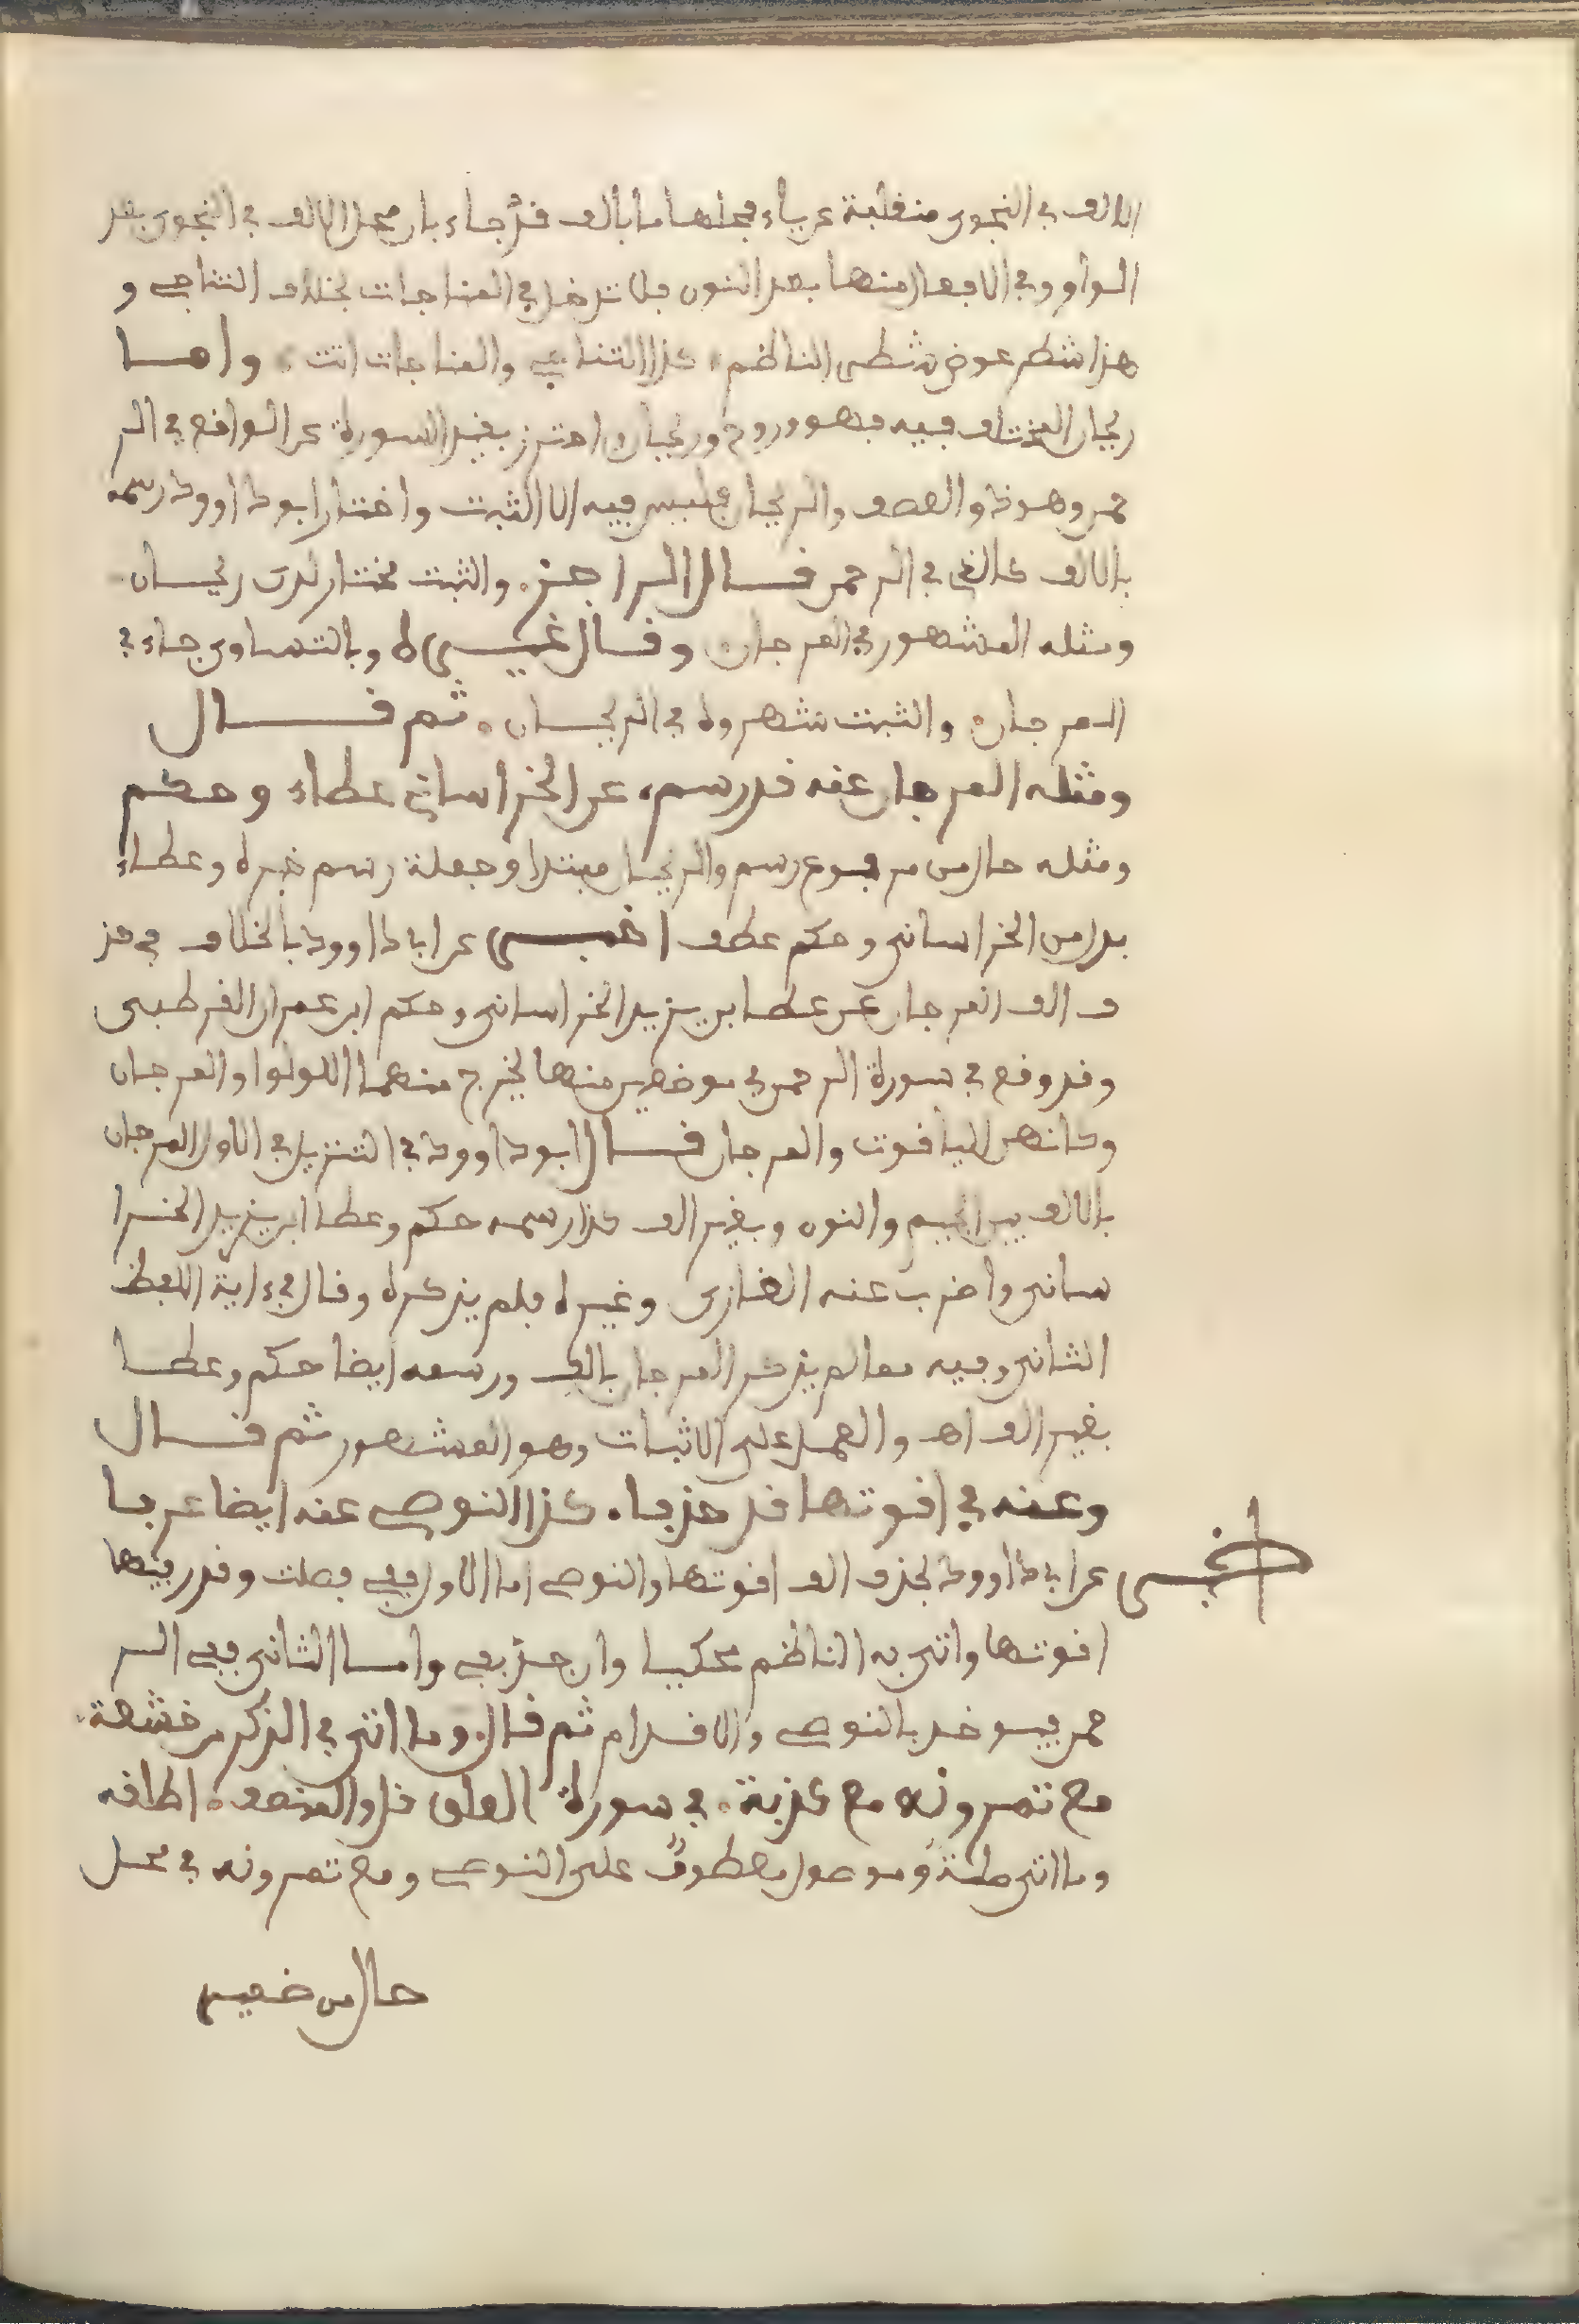 الالف في النجوى منقلبة عن ياء فجعلها ما بالف قد جاء بان محل الالف في النجوى بعد
الواو وفي الافعال منها بعد النون فلا تدخل في المناجات بخلاف التناجي و
هذا شطر عوض شطر الناظم، كذا التناجي والمناجات اتت . واما
ريحان المختلف فيه فهو وروح وريحان واحترز بقيد السورة عن الواقع في الر
حمن وهو ذو العصف والريحان فليس فيه الا الثبت واختار ابو داوود رسمه
بالالف كالذي في الرحمن قال الراجز. والثبت مختار لدى ريحان
ومثله المشهور في المرجان وقال غيره وبالتساوي جاء في
المرجان. والثبت شهروه في الريحان . ثم قال
ومثله المرجان عنه قد رسم، عن الخراساني عطاء وحكم
ومثله حال من مرفوع رسم والريحان مبتدا وجملة رسم خبره وعطاء
بدل من الخراساني وحكم عطف اخبر عن ابي داوود بالخلاف في حذ
ف الف المرجان عن عطا بن يزيد الخراساني وحكم ابن عمران القرطبي
وقد وقع في سورة الرحمن في موضعين منها يخرج منهما اللولوا والمرجان
وكانهن الياقوت والمرجان قال ابو داوود في التنزيل في الاول المرجان
بالالف بين الجيم والنون وبغير الف كذا رسمه حكم وعطا ابن يزيد الخرا
ساني واضرب عنه الغازي وغيره فلم يذكره وقال في ءاية اللفظ
الثاني وفيه مما لم يذكر المرجان بالف ورسمه ايضا حكم وعطا
بغير الف اه والعمل على الاثبات وهو المشهور ثم قال
وعنه في اقوتها قد حذفا. كذا النوصي عنه ايضا عرفا
اخبر عن ابي داوود بحذف الف اقوتها والنوصي اما الاول ففي فصلت وقدر فيها
اقوتها واتى به الناظم محكيا وان جر بفي واما الثاني ففي الر
حمن فيوخذ بالنوصي والاقدام ثم قال. وما اتى في الذكر من خشعة
مع تمرونه مع كذبة. في سورة العلق قل والمنصف. اطلقه
وما اتى صلة وموصول معطوف على النوصي ومع تمرونه في محل
حال من ضمير